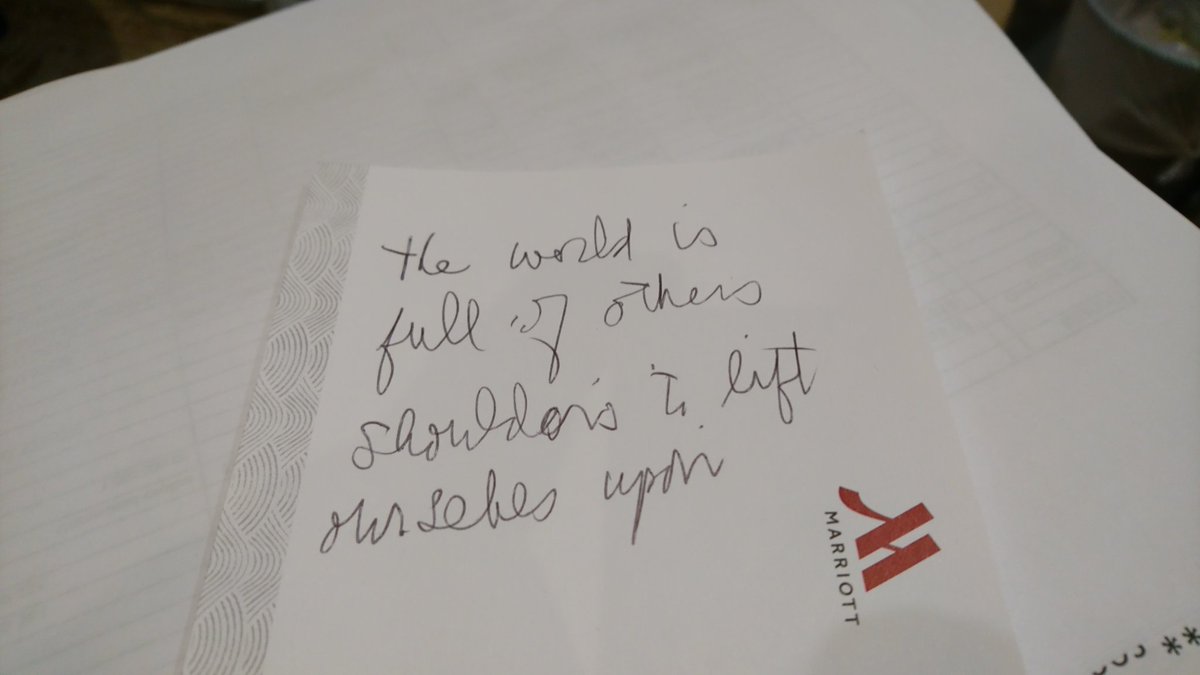 the world is
full of others
shoulders to lift
ourselves upon
MARRIOTT